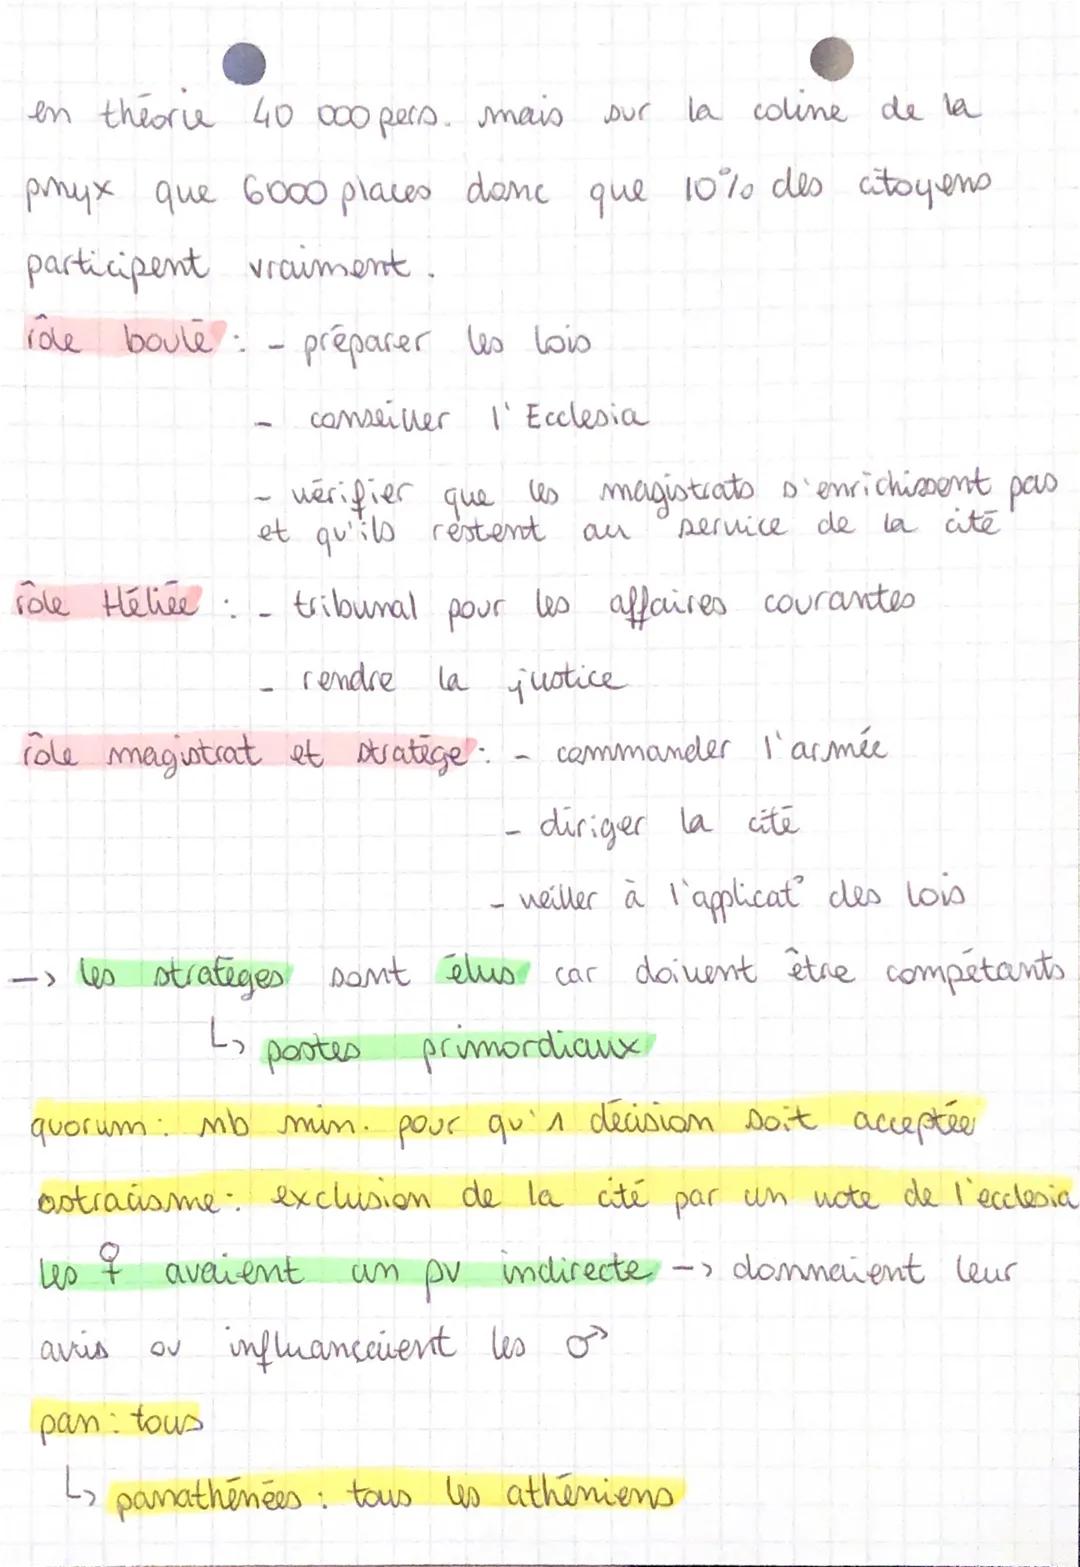 en théorie 40 000 pers. mais sur la coline de la
pnyx que 6000 places donc que 10% des citoyens
participent vraiment.
rôle boulē : - préparer les lois
- conseiller l'Ecclesia
- vérifier que les magistrats s'enrichissent pas
et qu'ils restent au service de la cité
rôle Héliée : - tribunal pour les affaires courantes
- rendre la justice
rôle magistrat et stratège : - commander l'armée
- diriger la cité
- veiller à l'applicat° des lois
-> les stratèges sont élus car doivent être compétants
↳ postes primordiaux
quorum : nb min. pour qu'1 décision soit acceptée
ostracisme : exclusion de la cité par un vote de l'ecclesia
les ♀ avaient un pv indirecte -> donnaient leur
avis ou influançaient les ♂
pan : tous
↳ panathénées : tous les athéniens